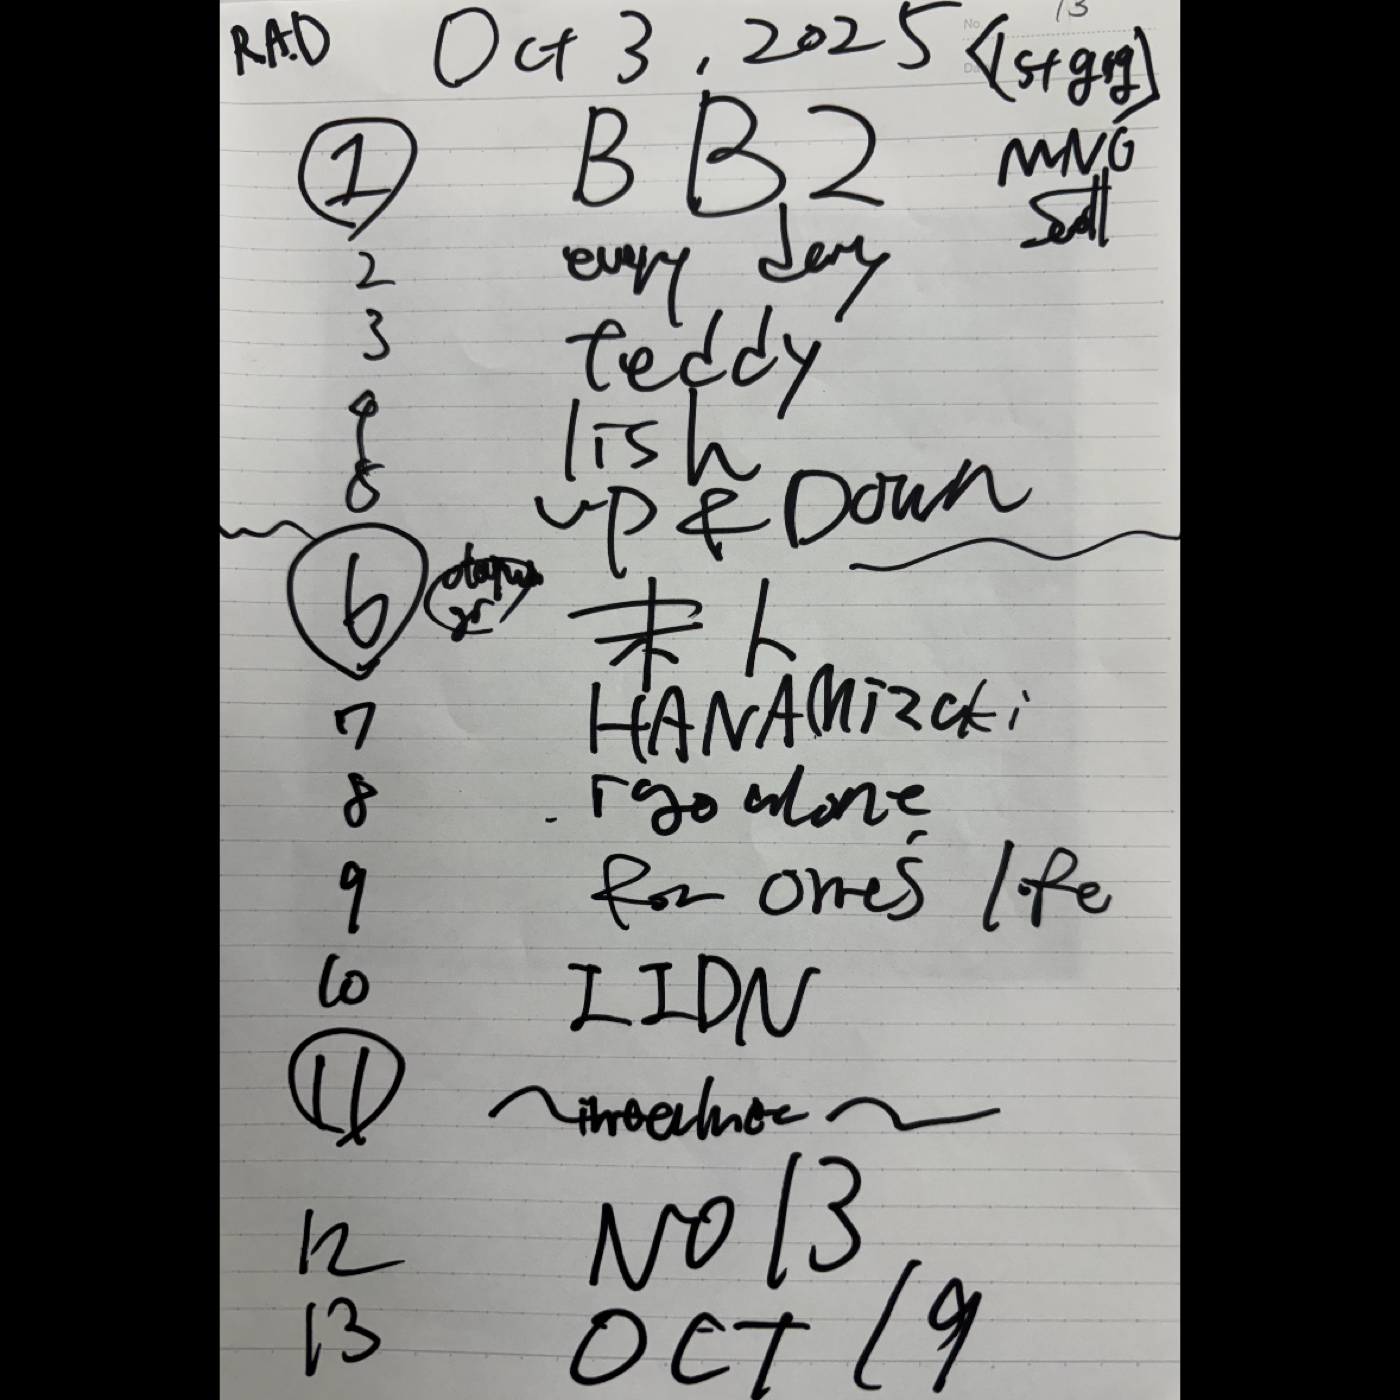 R.A.D Oct 3, 2025 (1st grg)
13
No.
MNG
① BB2
2 every day
3 teddy
4 lish
5 up & Down
⑥ 未ト
7 HANAMizuki
8 I go alone
9 for one's life
10 IIDN
⑪
12 NO 13
13 OCT 19